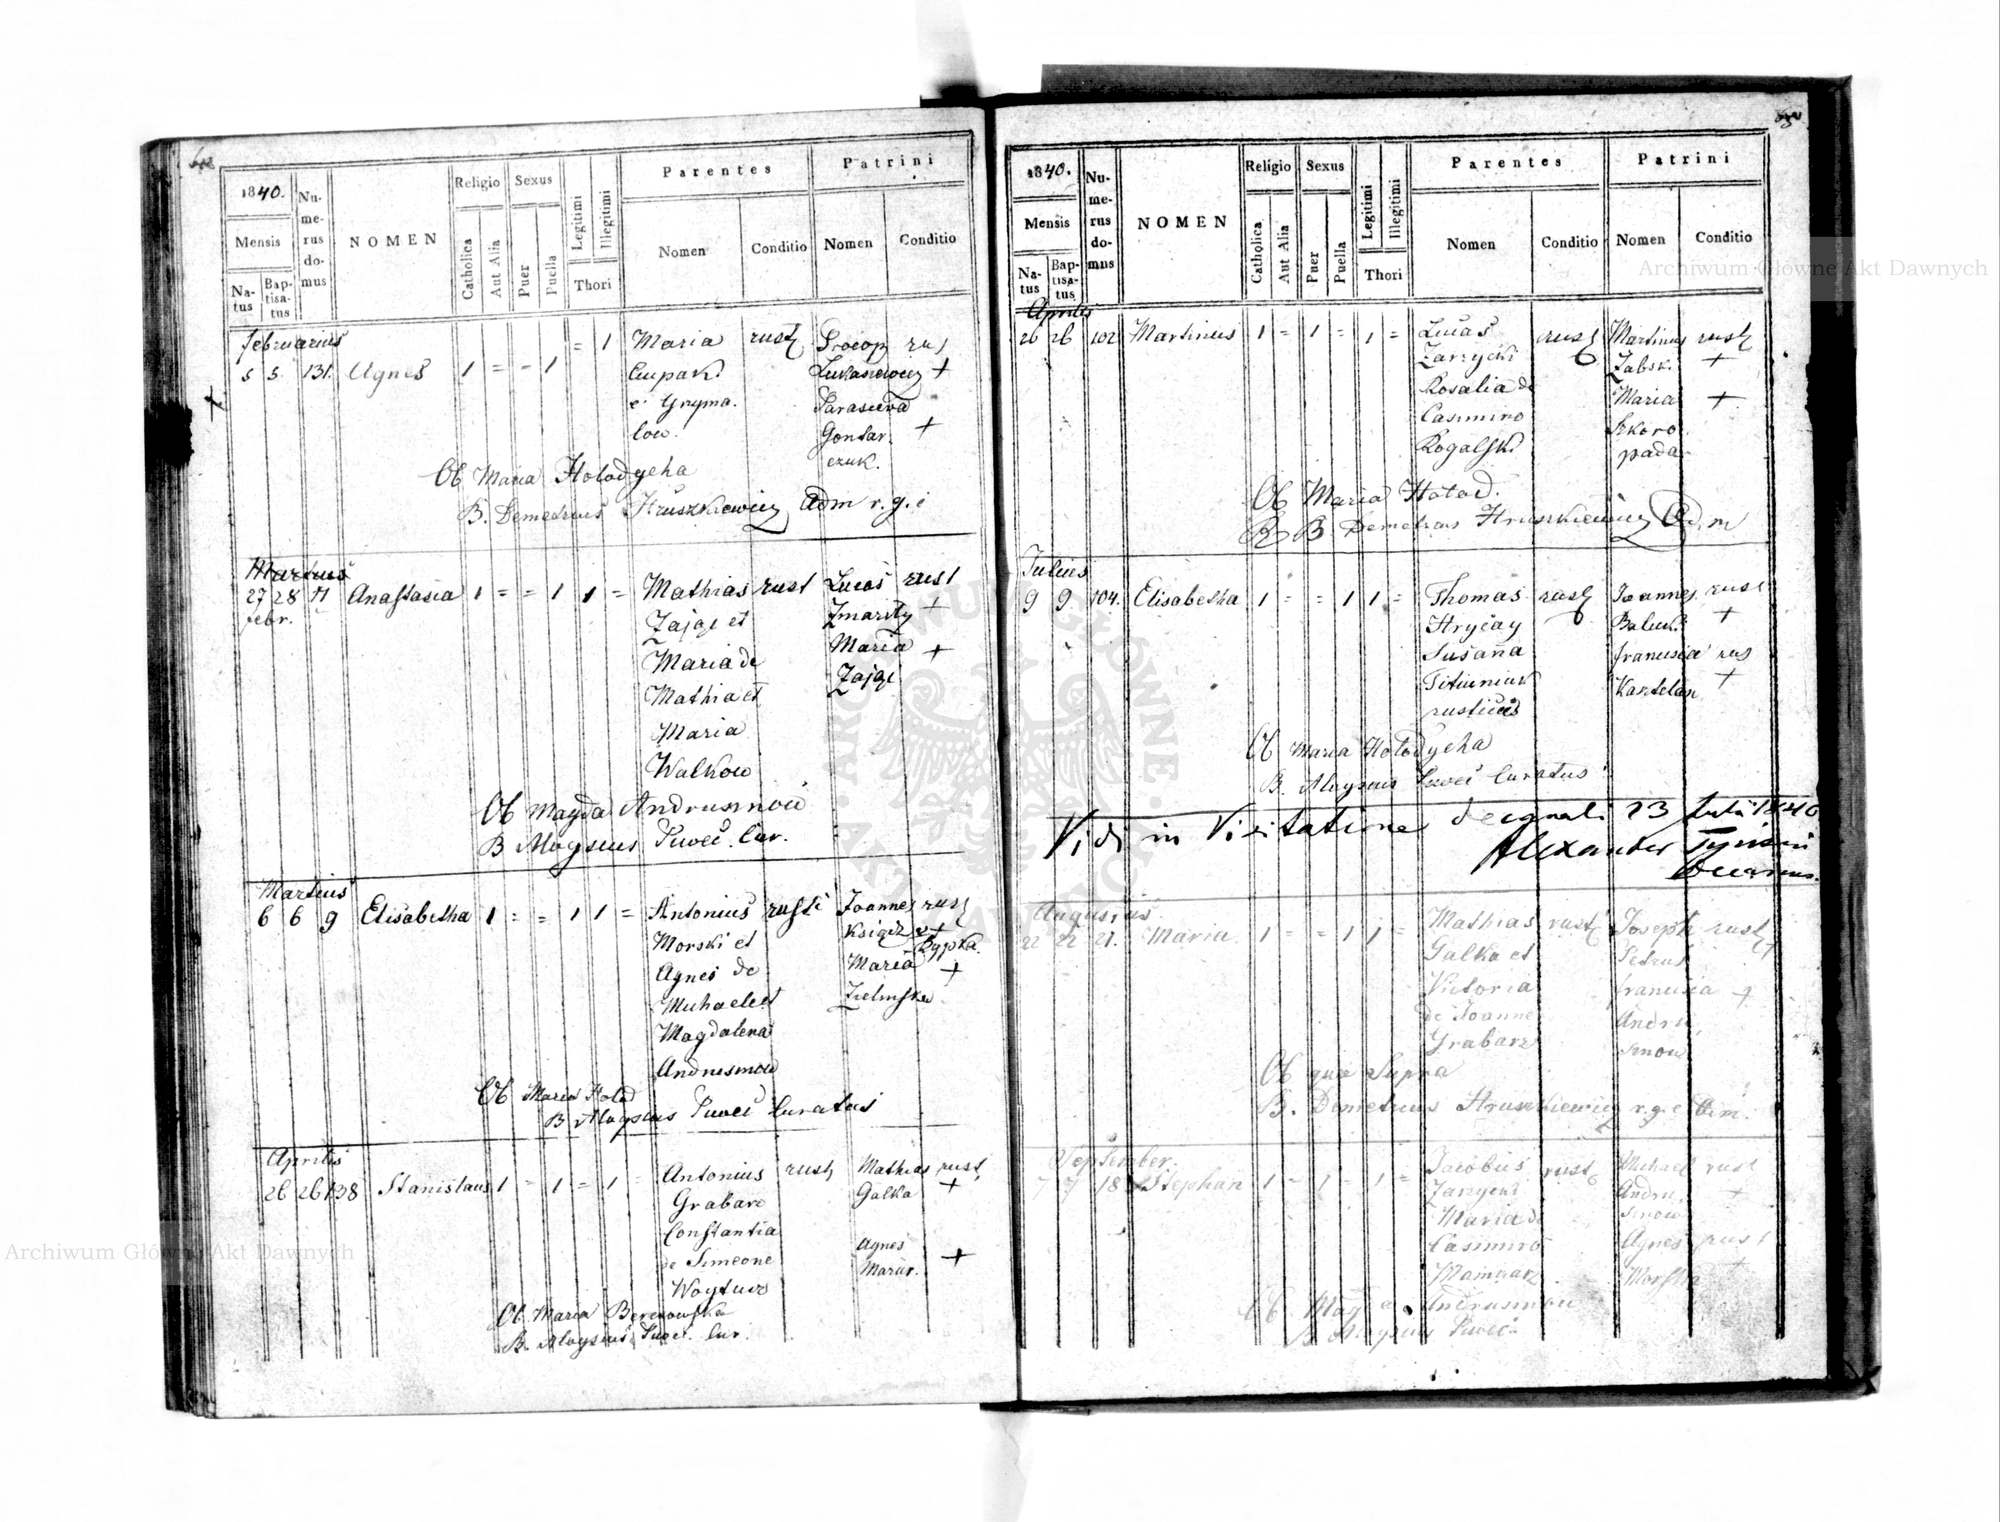 1840.
Mensis
Natus
Baptisatus
Numerus domus
NOMEN
Religio
Catholica
Aut Alia
Sexus
Puer
Puella
Legitimi
Illegitimi
Thori
Parentes
Nomen
Conditio
Patrini
Nomen
Conditio
februarius
5 5 131. Agnes 1 = - 1 = 1 Maria rust Procop rus
Lukasiewicz +
e Gryma.
low.
Gontar. +
czuk.
Ob Maria Hołodycha
B. Demetrius Hruszkiewicz Adm r. g. c
Martius
27 28 Anastasia 1 = = 1 1 = Mathias rust Lucas rust
febr.
Zając et Zmarzty +
Maria de Maria +
Mathia et Zając
Maria
Walkow
Ob Magda Andrusinow
B Aloysius Cur.
Martius
6 6 9 Elisabetha 1 = = 1 1 = Antonius rusti Joannes rust
Morski et Książ +
Agnes de Maria +
Michaele et Zielinska
Magdalena
Andrusinow
Ob Maria Hołod
B Aloysius Curatus
Aprilis
26 26 138 Stanislaus 1 = 1 = 1 = Antonius rust Mathias rust
Grabarz Galka +
Constantia
de Simeone Agnes +
Woytusz Mazur.
Ob Maria Berezowska
B. Aloysius Cur.
1840.
Mensis
Natus
Baptisatus
Numerus domus
NOMEN
Religio
Catholica
Aut Alia
Sexus
Puer
Puella
Legitimi
Illegitimi
Thori
Parentes
Nomen
Conditio
Patrini
Nomen
Conditio
Aprilis
26 26 102 Martinus 1 = 1 = 1 = Lucas rust Martinus rust
Zarzycki Zabsk. +
Rosalia de Maria +
Casimiro Skoro
Rogalski pada
Ob Maria Hołod.
B Demetrius Hruszkiewicz Adm
Julius
9 9 104. Elisabetha 1 = = 1 1 = Thomas rust Joannes rust
Hryćay +
Susanna francisca rus
Kasztelan +
rustici
Ob Maria Hołodycha
B. Aloysius Curatus
Vidi in Visitatione decanali 23 Julii 1840
Alexander
Decanus.
Augustus
22 22 21. Maria 1 = = 1 1 = Mathias rust Joseph rust
Galka et Petrus +
Victoria francisca +
de Joanne Andru
Grabarz sinow
Ob qua Supra
B. Demetrius Hruszkiewicz r. g. c Adm.
September
7 7 18 Stephan 1 = 1 = 1 = Jacobus rust Michael rust
Zarzycki Andru +
Maria de sinow
Casimiro Agnes rust
Morska +
Ob Magda Andrusinow
B Aloysius
Archiwum Główne Akt Dawnych
Archiwum Główne Akt Dawnych
ARCHIWUM GŁÓWNE AKT DAWNYCH